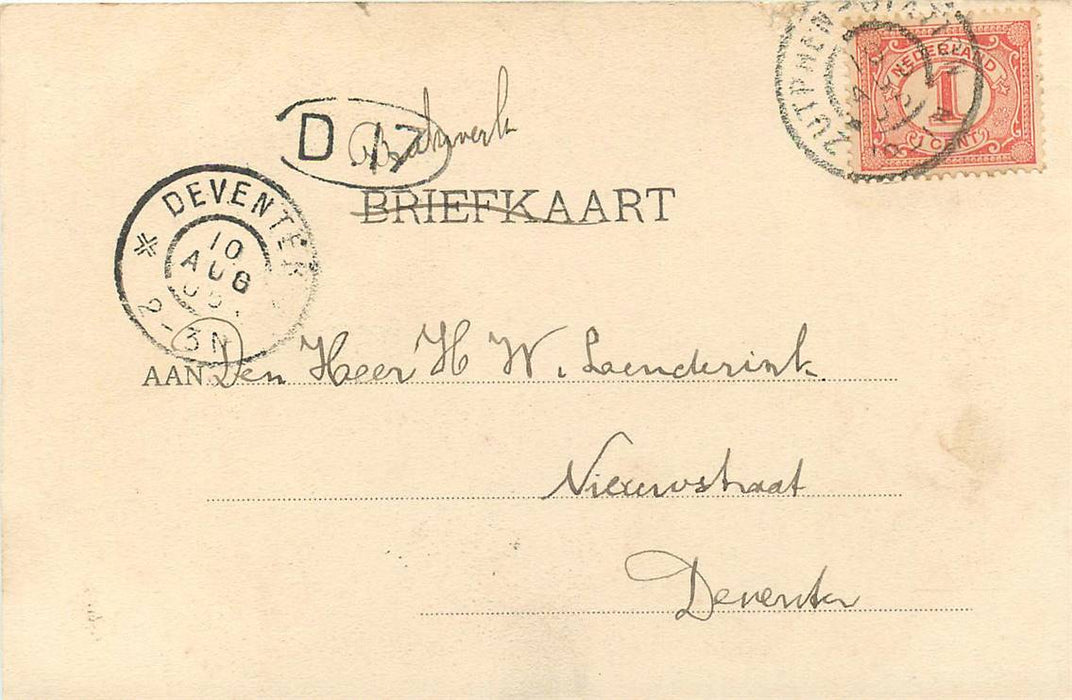 ZUTPHEN
NEDERLAND
1
CENT
D 17
Drukwerk
BRIEFKAART
DEVENTER
10
AUG
2-3N
AAN Den Heer H W. Leenderink
Nieuwstraat
Deventer